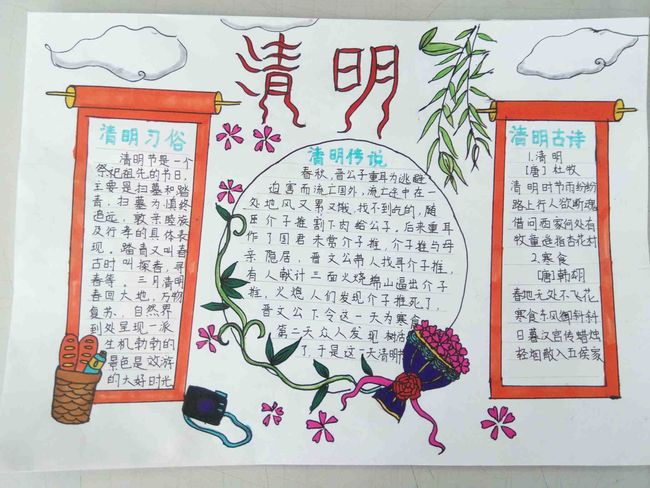 清明
清明习俗
清明节是一个
祭祀祖先的节日,
主要是扫墓和踏
青,扫墓为慎终
追远、敦亲睦族
及行孝的具体表
现。踏青又叫春
古时叫探春、寻
春等。三月清明
春回大地,万物
复苏、自然界
到处呈现一派
生机勃勃的
景色是效游
的大好时光
清明传说
春秋,晋公子重耳为逃避
迫害而流亡国外,流亡途中在一
处地风又累又饿,找不到吃的,随
臣介子推割下肉给公子,后来重耳
作了国君未赏介子推,介子推与母
亲隐居,晋文公弟人找寻介子推,
有人献计三面火烧绵山逼出介子
推,火熄人们发现介子推死了,
晋文公下令这一天为寒食
第二天众人发现树
了,于是这一天清明
清明古诗
1.清明
[唐]杜牧
清明时节雨纷纷
路上行人欲断魂
借问酒家何处有
牧童遥指杏花村
2.寒食
[唐]韩翃
春地无处不飞花
寒食东风御斜斜
日暮汉宫传蜡烛
轻烟散入五侯家